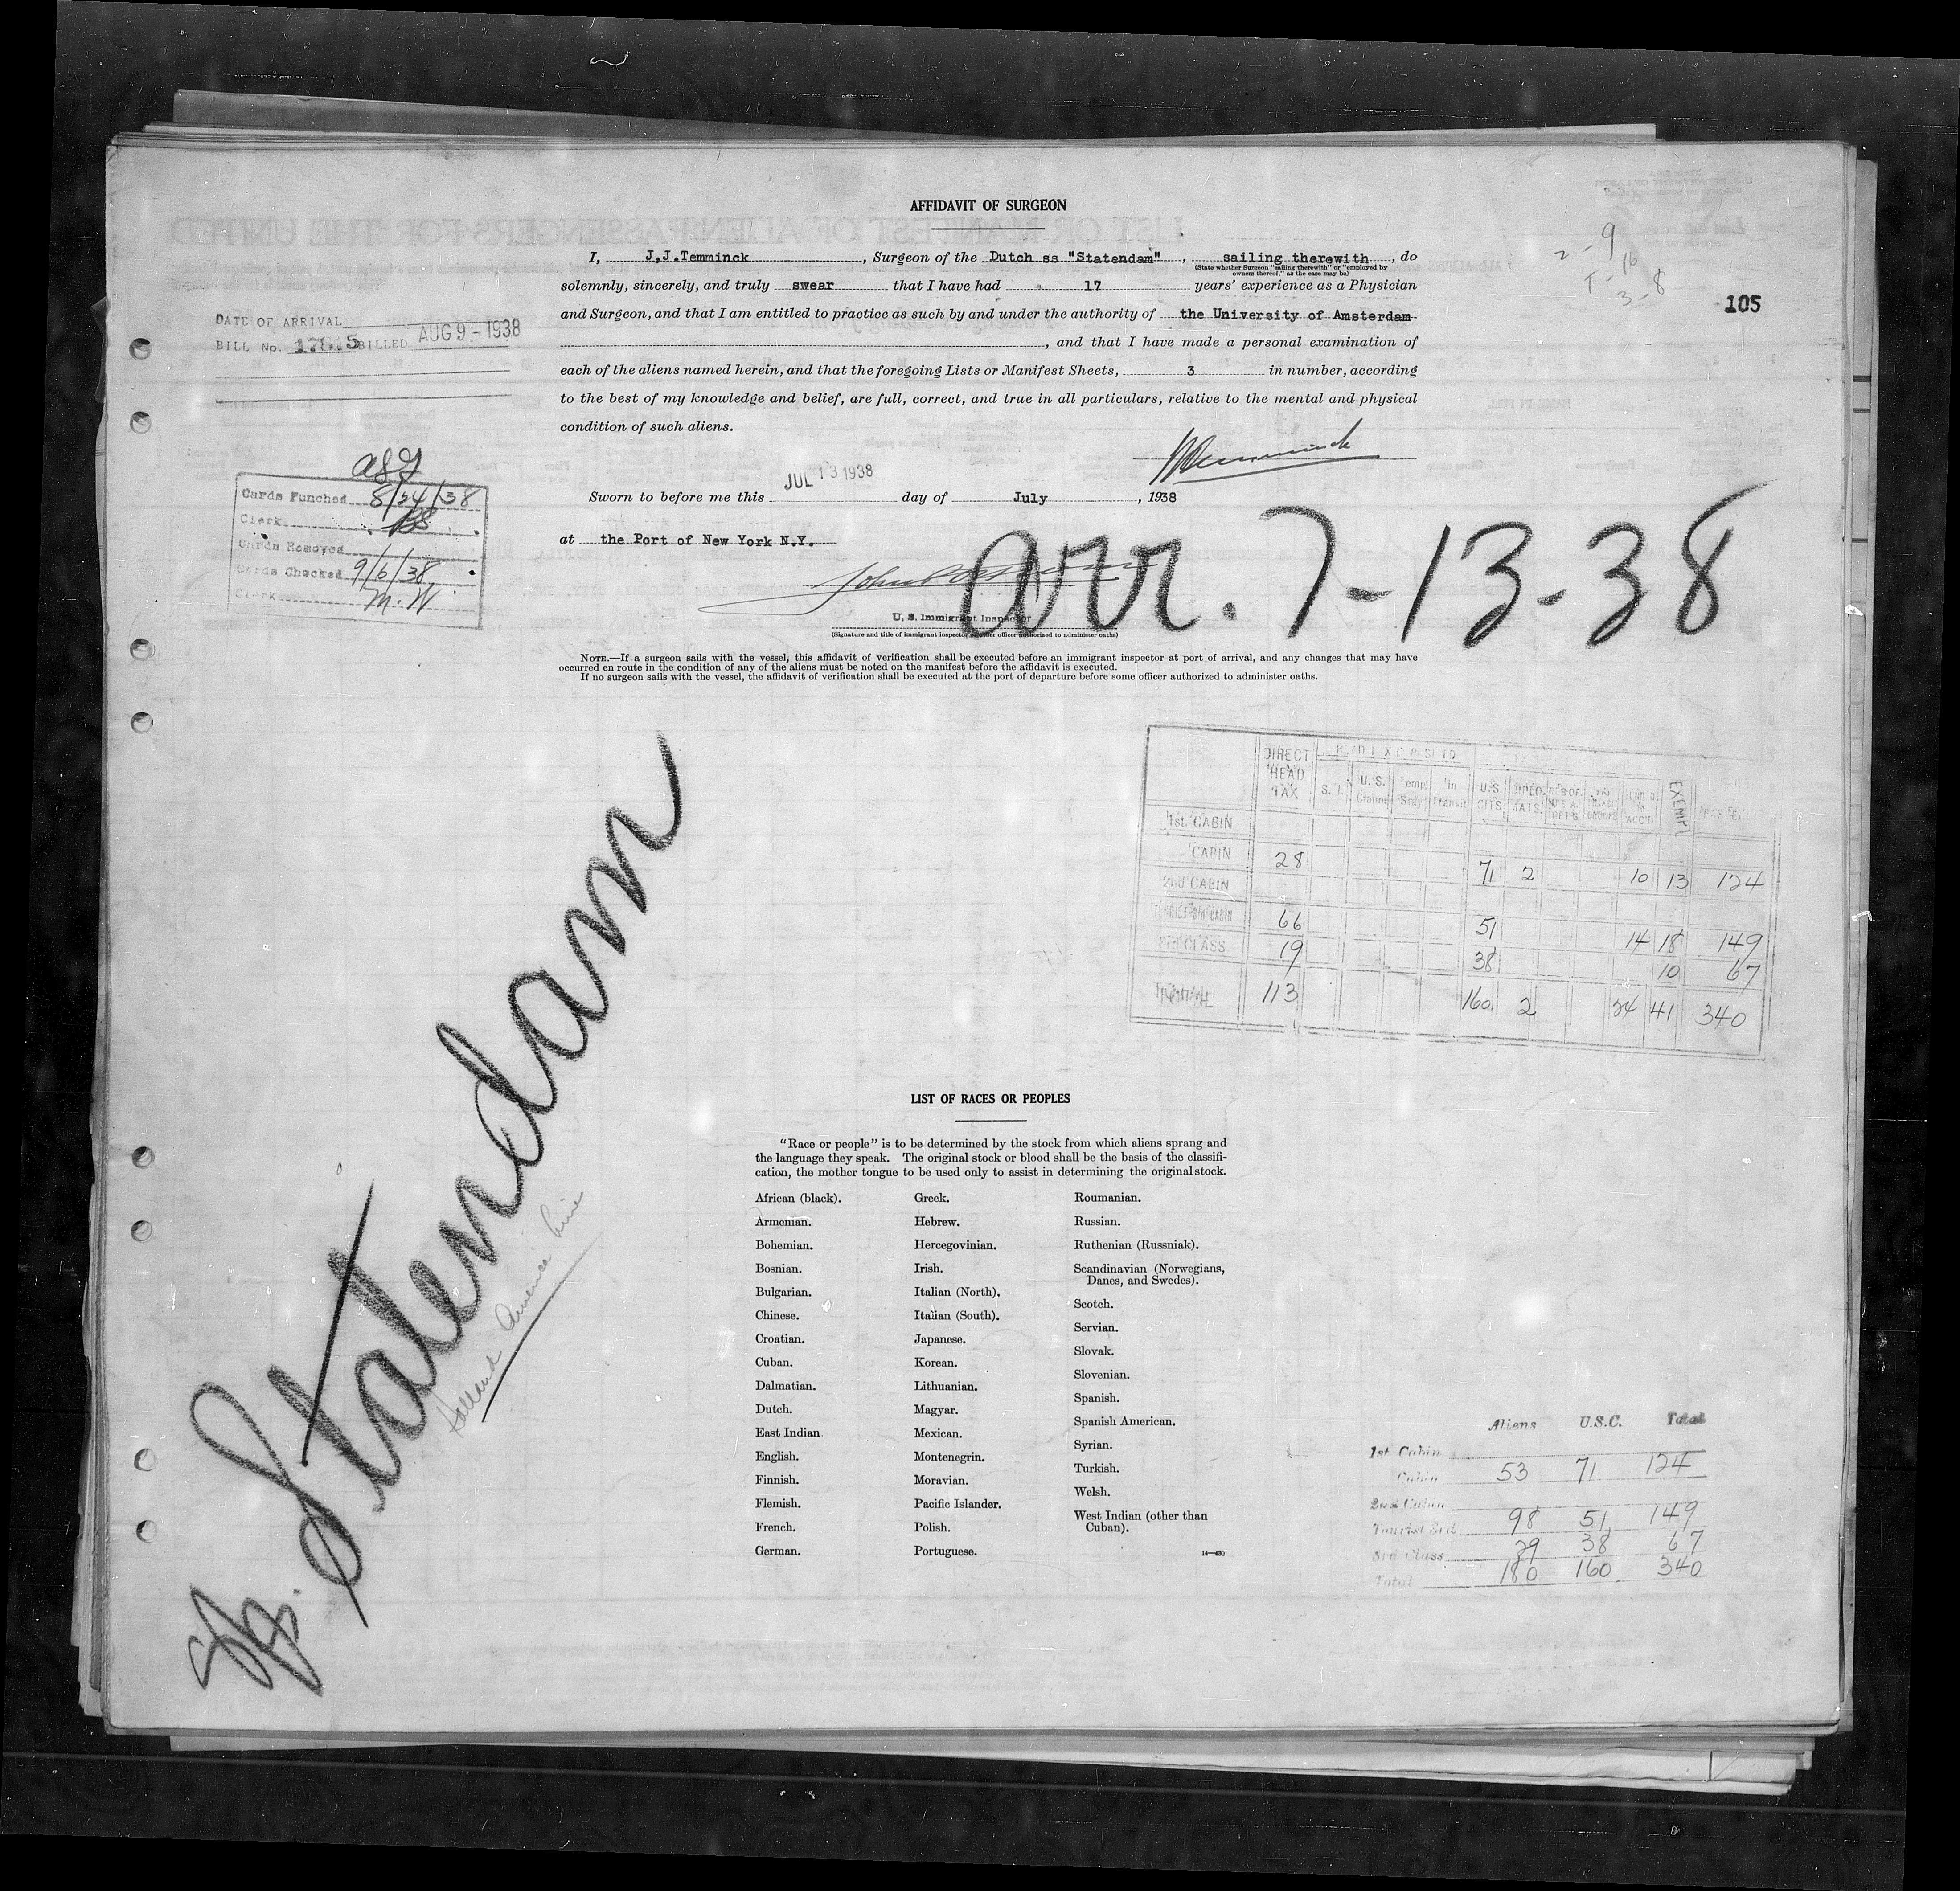 AFFIDAVIT OF SURGEON
I, J.J.Temminck, Surgeon of the Dutch ss "Statendam", sailing therewith, do
(State whether Surgeon "sailing therewith" or "employed by
owners thereof," as the case may be)
solemnly, sincerely, and truly swear that I have had 17 years' experience as a Physician
and Surgeon, and that I am entitled to practice as such by and under the authority of the University of Amsterdam
, and that I have made a personal examination of
each of the aliens named herein, and that the foregoing Lists or Manifest Sheets, 3 in number, according
to the best of my knowledge and belief, are full, correct, and true in all particulars, relative to the mental and physical
condition of such aliens.
JJTemminck
JUL 13 1938
Sworn to before me this day of July, 1938
at the Port of New York N.Y.
U.S. Immigrant Inspector
(Signature and title of immigrant inspector or other officer authorized to administer oaths)
NOTE.—If a surgeon sails with the vessel, this affidavit of verification shall be executed before an immigrant inspector at port of arrival, and any changes that may have
occurred en route in the condition of any of the aliens must be noted on the manifest before the affidavit is executed.
If no surgeon sails with the vessel, the affidavit of verification shall be executed at the port of departure before some officer authorized to administer oaths.
2-9
T-16
3-8
105
DATE OF ARRIVAL
BILL No. BILLED AUG 9-1938
Cards Punched 8/24/38
Clerk
Cards Removed
Cards Checked 9/6/38
Clerk M.W
arr. 7-13-38
SS. Statendam
Holland America Line
DIRECT HEAD TAX S.I. U.S. Claims Temp Only In Transit U.S. CITS. DIPLOMATS EXEMPT
1st CABIN
CABIN 28 71 2 10 13 124
2nd CABIN
TOURIST 3rd CABIN 66 51 14 18 149
3rd CLASS 19 38 10 67
TOTAL 113 160 2 24 41 340
LIST OF RACES OR PEOPLES
"Race or people" is to be determined by the stock from which aliens sprang and
the language they speak. The original stock or blood shall be the basis of the classifi-
cation, the mother tongue to be used only to assist in determining the original stock.
African (black).
Armenian.
Bohemian.
Bosnian.
Bulgarian.
Chinese.
Croatian.
Cuban.
Dalmatian.
Dutch.
East Indian
English.
Finnish.
Flemish.
French.
German.
Greek.
Hebrew.
Hercegovinian.
Irish.
Italian (North).
Italian (South).
Japanese.
Korean.
Lithuanian.
Magyar.
Mexican.
Montenegrin.
Moravian.
Pacific Islander.
Polish.
Portuguese.
Roumanian.
Russian.
Ruthenian (Russniak).
Scandinavian (Norwegians,
Danes, and Swedes).
Scotch.
Servian.
Slovak.
Slovenian.
Spanish.
Spanish American.
Syrian.
Turkish.
Welsh.
West Indian (other than
Cuban).
Aliens U.S.C. Total
1st Cabin
Cabin 53 71 124
2nd Cabin
Tourist 3rd 98 51 149
3rd Class 29 38 67
Total 180 160 340